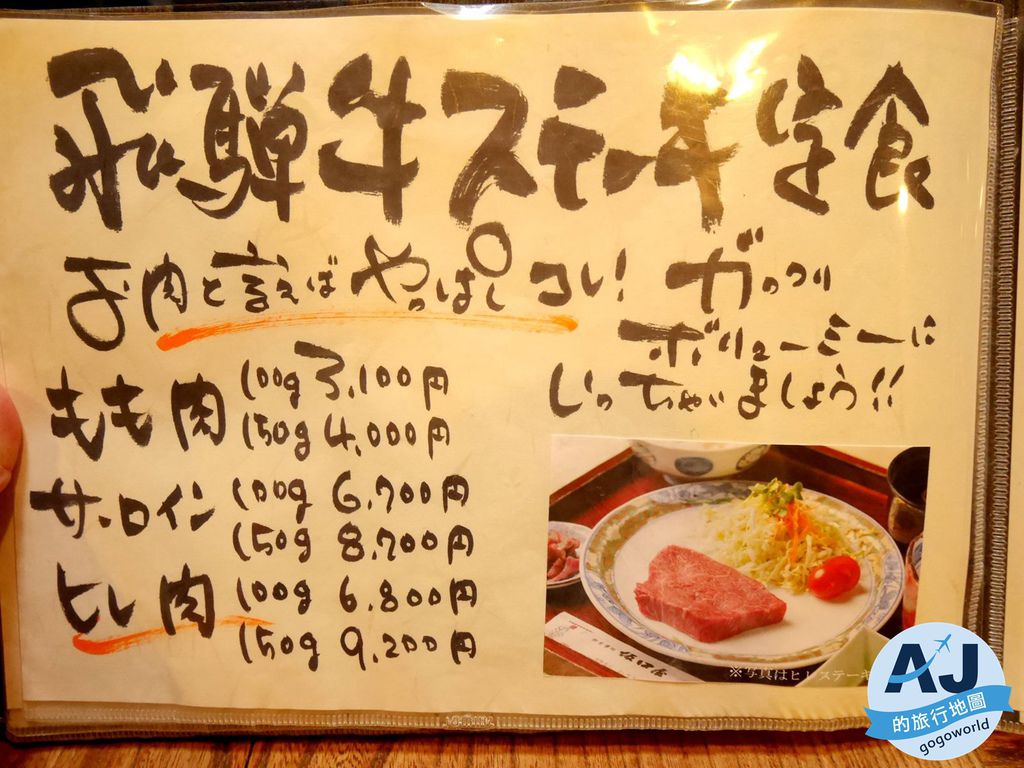 飛騨牛ステーキ定食
お肉と言えばやっぱしコレ!
ガッツリ
ボリューミーに
いっちゃいましょう!!
もも肉
100g 3,100円
150g 4,000円
サーロイン
100g 6,700円
150g 8,700円
ヒレ肉
100g 6,800円
150g 9,200円
坂口屋
※写真はヒレステーキ
AJ
的旅行地圖
gogoworld